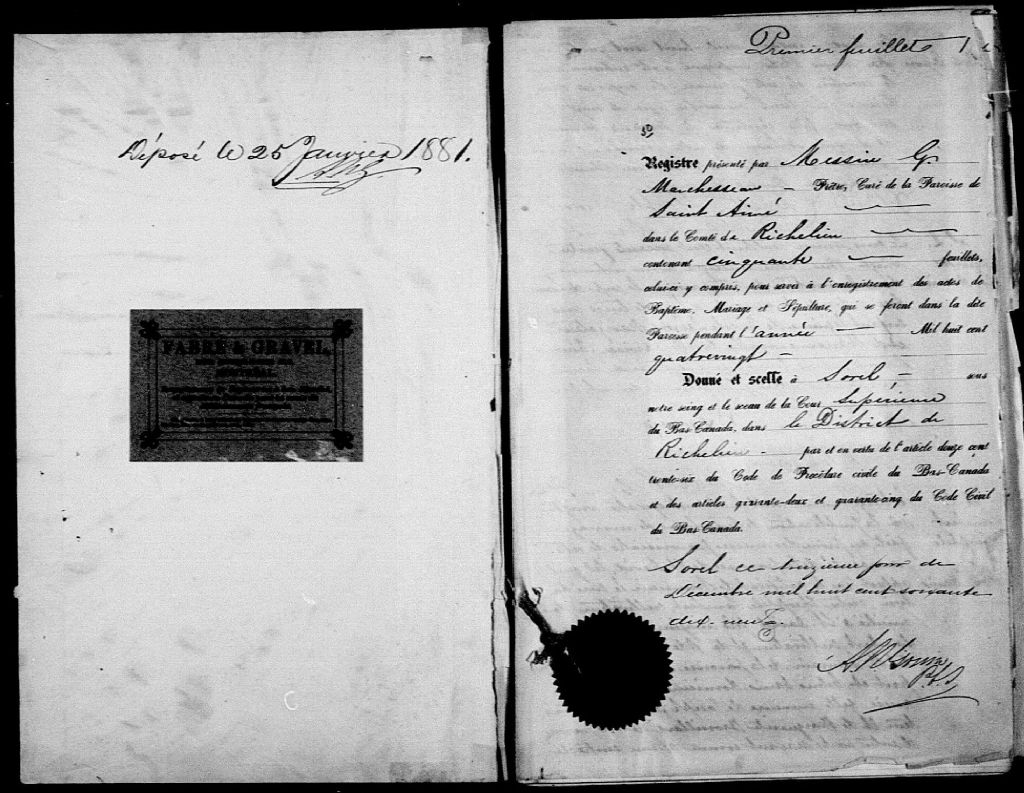 Déposé le 25 Janvier 1881.
FABRE & GRAVEL,
Premier feuillet 1
Registre présenté par Messire G.
Marchesseau – Prêtre, Curé de la Paroisse de
Saint Aimé
dans le Comté de Richelieu
contenant cinquante feuillets,
celui-ci y compris, pour servir à l'enregistrement des actes de
Baptême, Mariage et Sépulture, qui se feront dans la dite
Paroisse pendant l'année — Mil huit cent
quatrevingt –
Donné et scellé à Sorel, – sous
notre seing et le sceau de la Cour Supérieure
du Bas-Canada, dans le District de
Richelieu – par et en vertu de l'article douze cent
trente-six du Code de Procédure civile du Bas-Canada
et des articles quarante-deux et quarante-cinq du Code Civil
du Bas-Canada.
Sorel ce treizième jour de
Décembre mil huit cent soixante
dix-neuf.